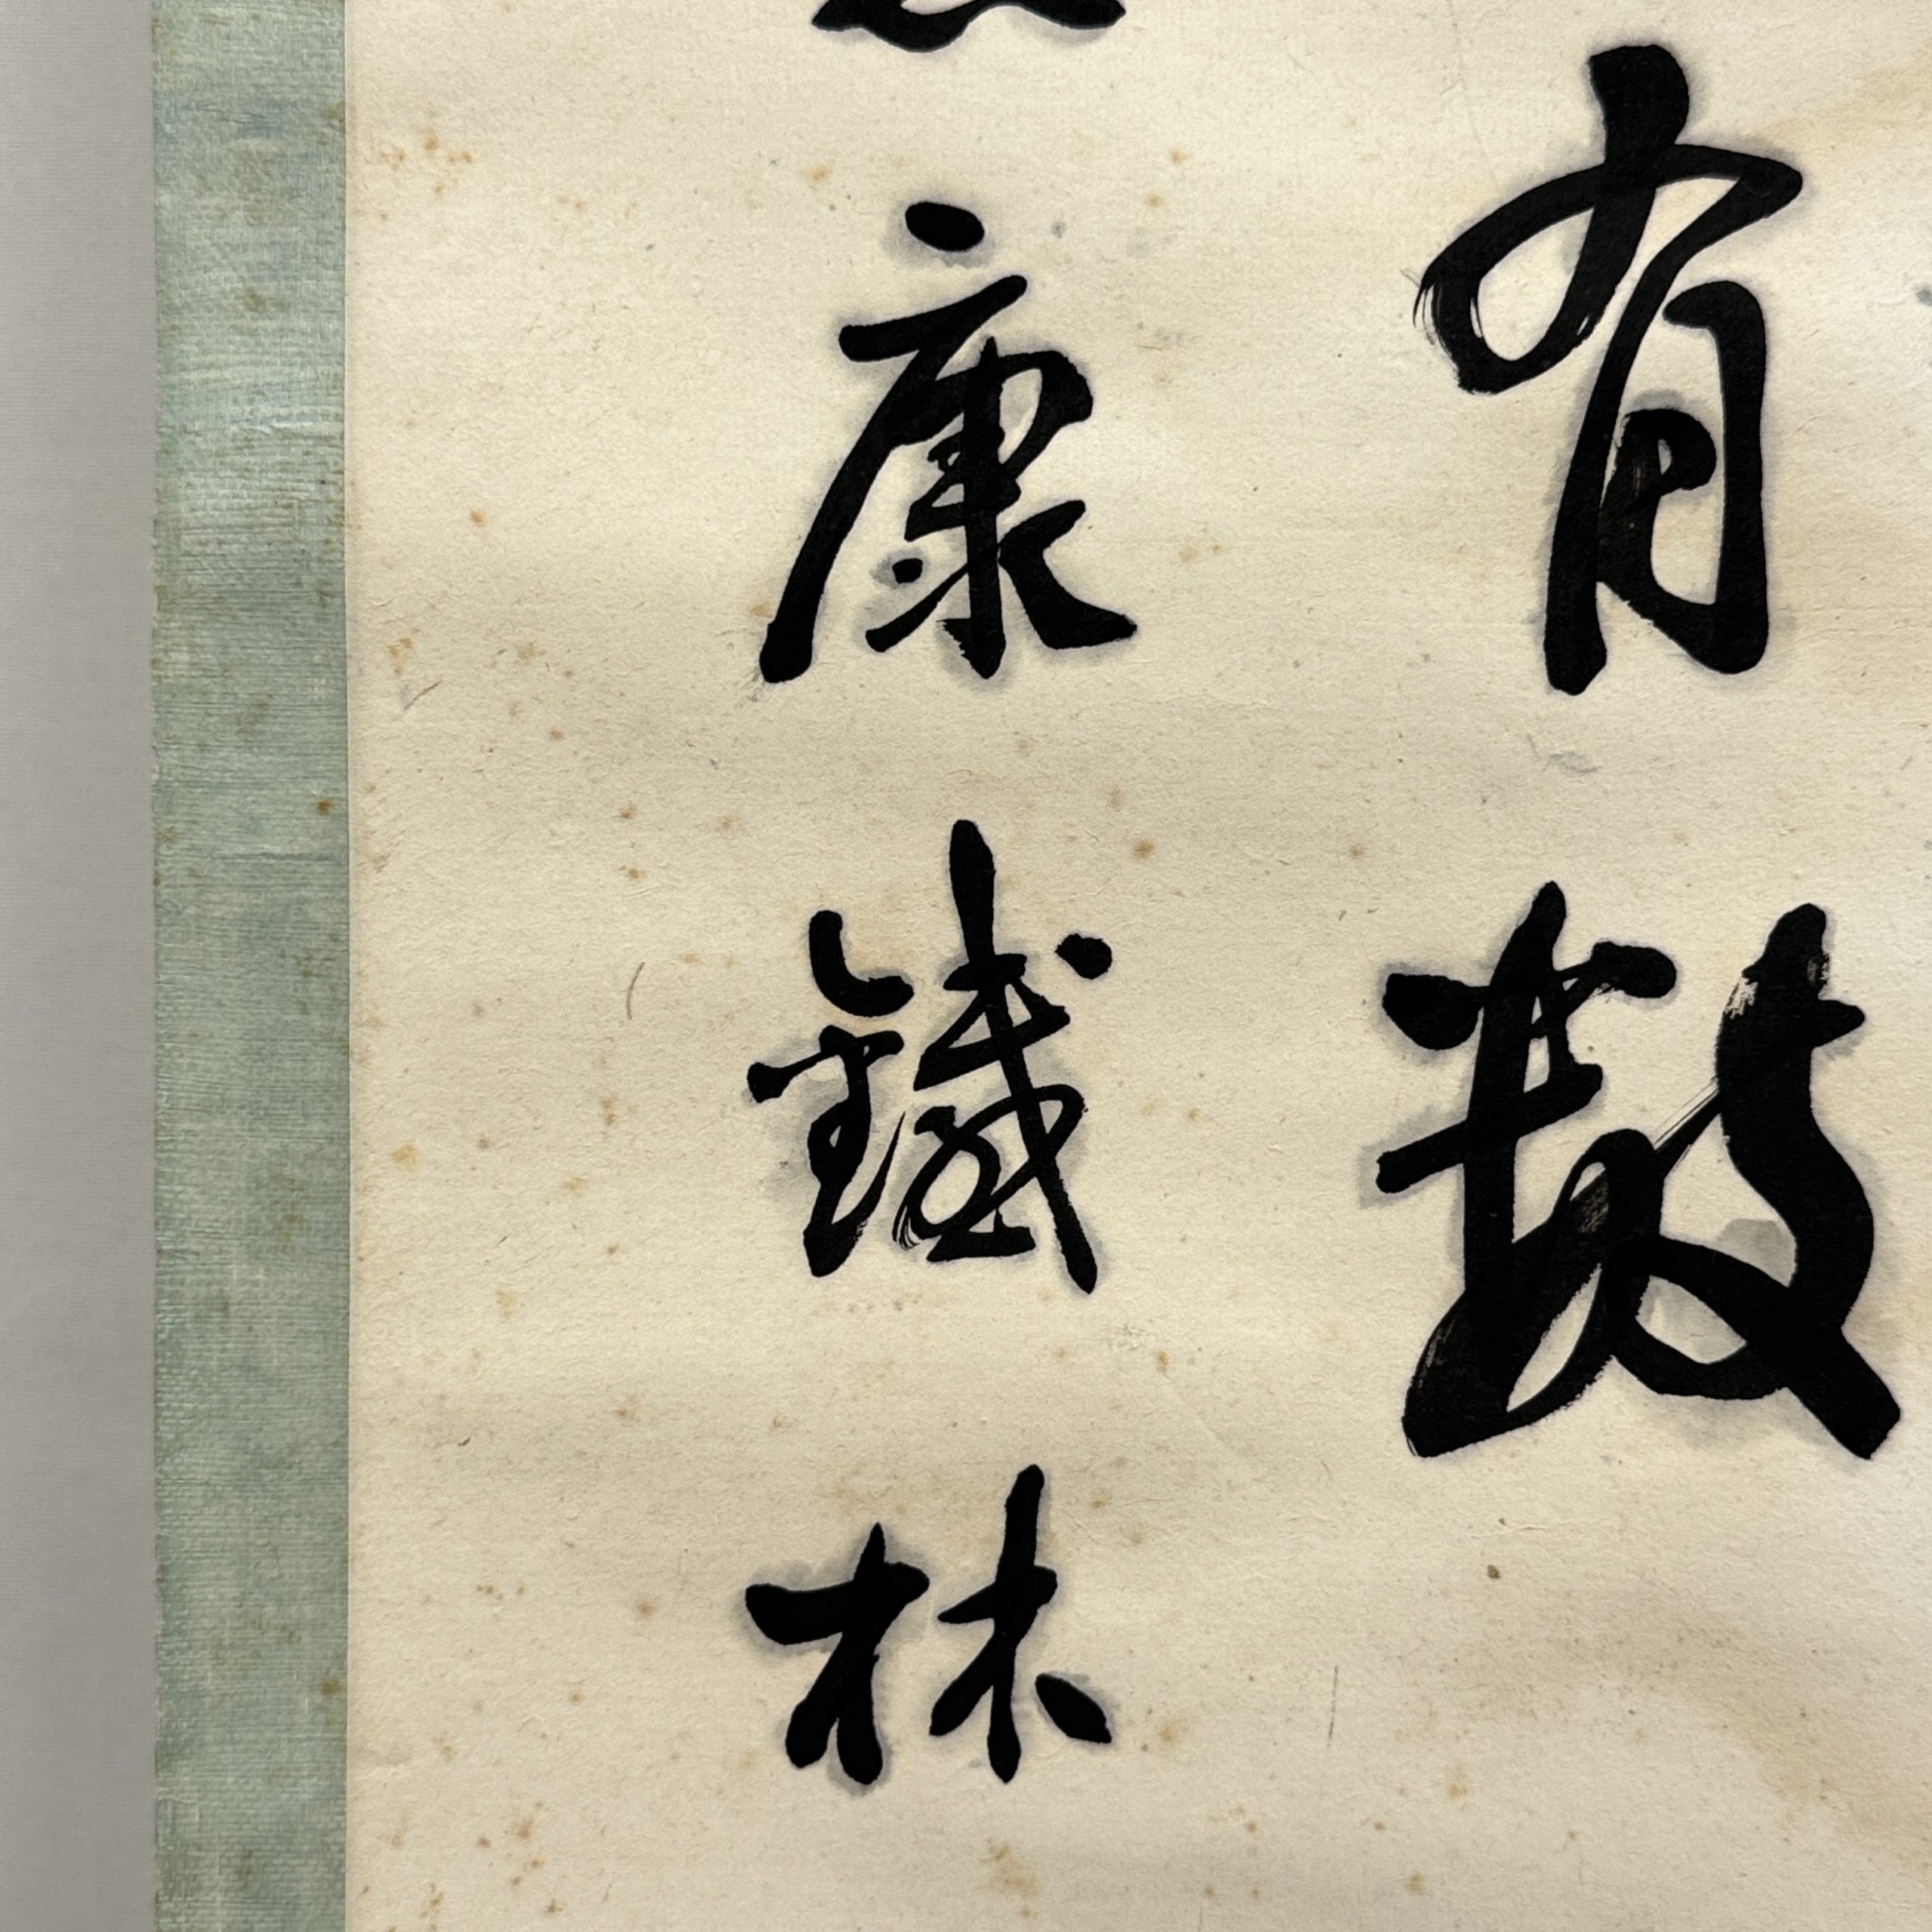 有數
康鐵林